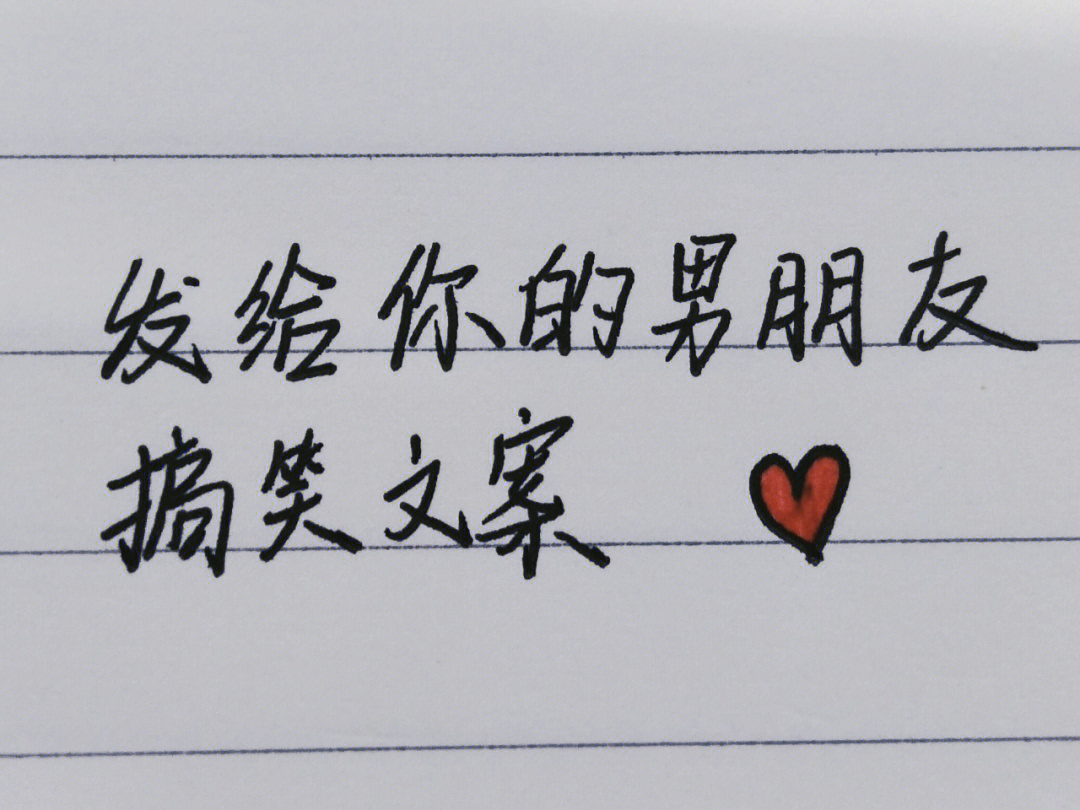 发给你的男朋友
搞笑文案